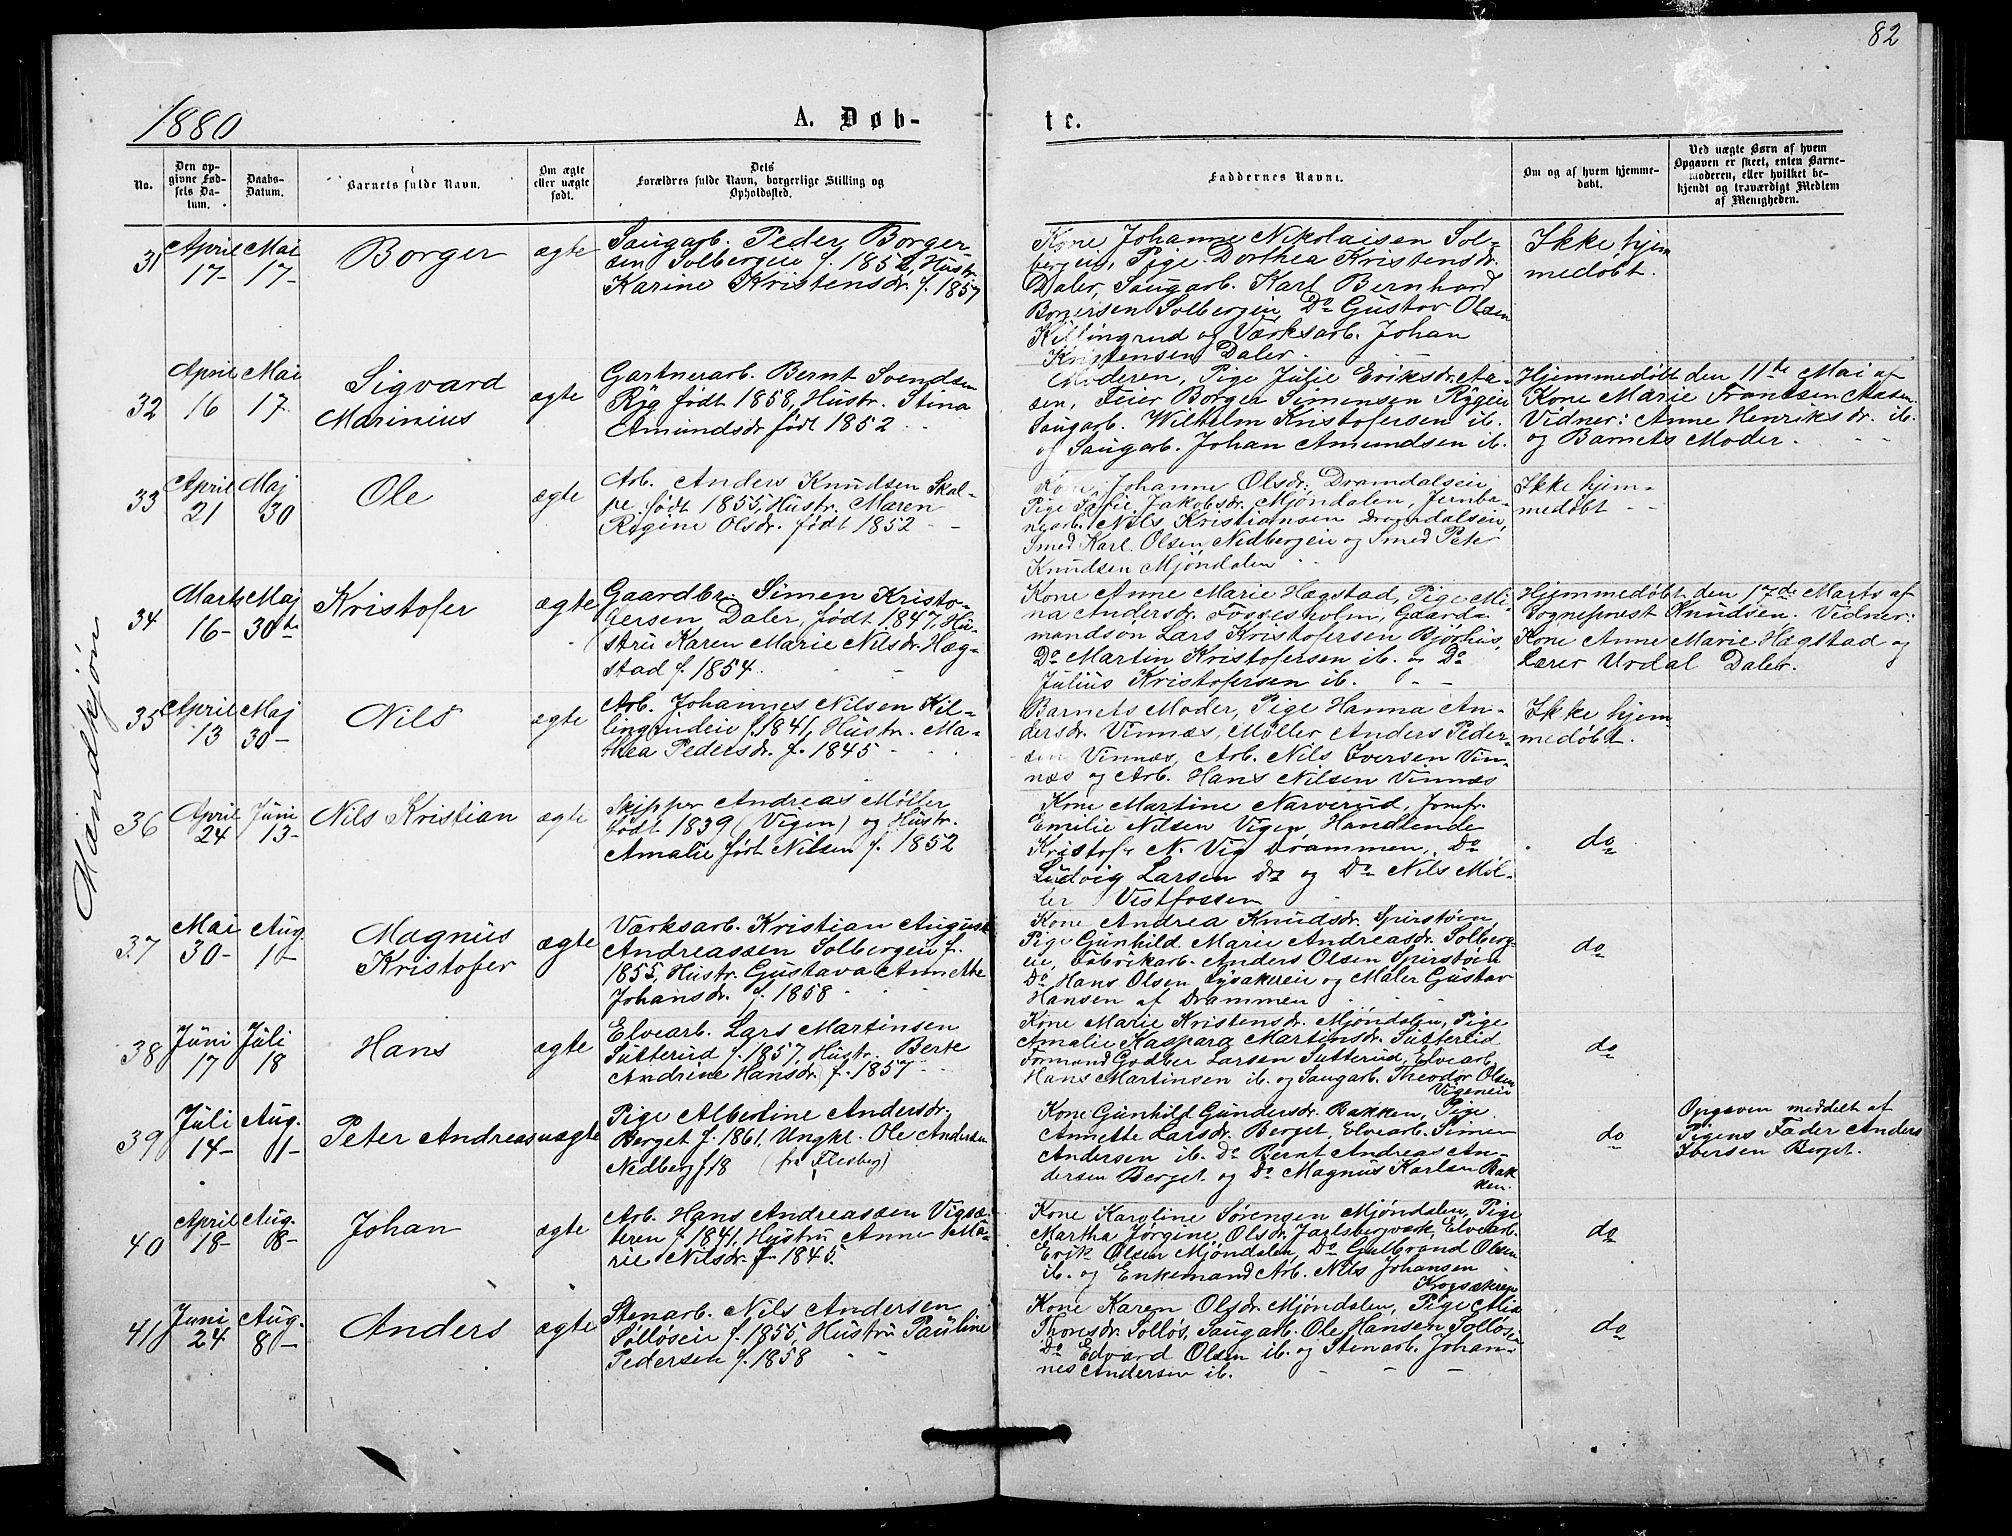 82
1880
A. Døb-
te.
No.
Den op-
givne Fød-
sels Da-
tum.
Daabs-
Datum.
Barnets fulde Navn.
Om ægte
eller uægte
født.
Dets
Forældres fulde Navn, borgerlige Stilling og
Opholdssted.
Faddernes Navne.
Om og af hvem hjemme-
døbt.
Ved uægte Børn af hvem
Opgaven er skeet, enten Barne-
moderen, eller hvilket be-
kjendt og troværdigt Medlem
af Menigheden.
Mandkjøn
31
April
17-
Mai
17-
Borger
ægte
Saugarb. Peder Borger-
sen Solbergeie f. 1852, Hustr.
Karine Kristensdr. f. 1857
Kone Johanne Nikolaisen Sol-
bergeie, Pige Dorthea Kristensdr.
Daler, Saugarb. Karl Bernhard
Borgersen Solbergeie, Do Gustav Olsen
Killingrud og Værksarb. Johan
Kristensen Daler.
Ikke hjem
medøbt.
32
April
16
Mai
17
Sigvard
Marinius
ægte
Gartnerarb. Bernt Svendsen
Ryg født 1858, Hustr. Stina
Amundsdr. født 1852
Moderen, Pige Julie Eriksdr. Aa-
sen, Feier Borger Simensen Rygeie
Saugarb. Wilhelm Kristofersen ib.
og Saugarb. Johan Amundsen ib.
Hjemmedøbt den 11te Mai af
Kone Marie Frantsen Aasen.
Vidner: Anne Henriksdr. ib.
og Barnets Moder.
33
April
21
Maj
30
Ole
ægte
Arb. Anders Knudsen Skal-
pe født 1855, Hustr. Maren
Regine Olsdr. født 1852
Kone Johanne Olsdr. Dramdaleie,
Pige Sofie Jakobsdr. Mjøndalen, Jernba-
nearb. Nils Kristiansen Dramdaleie,
Smed Karl Olsen Nedbergeie og Smed Peter
Knudsen Mjøndalen
Ikke hjem-
medøbt
34
Marts
16-
Maj
30te
Kristofer
ægte
Gaardbr. Simen Kristo-
fersen Daler, født 1847, Hu-
stru Karen Marie Nilsdr. Hæg-
stad f. 1854.
Kone Anne Marie Hægstad, Pige Mi-
na Andersdr. Fossesholm, Gaard-
mandsøn Lars Kristofersen Bjørhus,
Do Martin Kristofersen ib. og Do
Julius Kristofersen ib.
Hjemmedøbt den 17de Marts af
Sogneprest Knudsen. Vidner:
Kone Anne Marie Hægstad og
Lærer Urdal Daler.
35
April
13
Maj
30-
Nils
ægte
Arb. Johannes Nilsen Kil-
lingrudeie f. 1841, Hustr. Ma-
thea Pedersdr. f. 1845
Barnets Moder, Pige Hanna An-
dersdr. Vinnæs, Møller Anders Peder-
sen Vinnæs, Arb. Nils Iversen Vin-
næs og Arb. Hans Nilsen Vinnæs
Ikke hjem
medøbt.
36
April
24
Juni
13-
Nils Kristian
ægte
Skipper Andreas Møller
født 1839 (Vigen) og Hustr.
Amalie født Nilsen f. 1852
Kone Martine Narverud, Jomfr.
Emilie Nilsen Vigen, Handlende
Kristofr N. Vig Drammen, Do
Ludvig Larsen do og Do Nils Møl-
ler Vestfossen
do
37
Mai
30-
Aug.
1-
Magnus
Kristofer
ægte
Værksarb. Kristian August
Andreassen Solbergeie f.
1855, Hustr. Gustava Annette
Johansdr. f. 1858
Kone Andrea Knudsdr. Spirstøen,
Pige Gunhild Marie Andreasdr. Solberg-
eie, Fabrikarb. Anders Olsen Spirstøen
Do Hans Olsen Lysakereie og Maler Gustav
Hansen af Drammen
do
38
Juni
17
Juli
18
Hans
ægte
Elvearb. Lars Martinsen
Sutterud f. 1857, Hustr. Berte
Andrine Hansdr. f. 1857
Kone Marie Kristensdr. Mjøndalen, Pige
Amalie Kaspara Martinsdr. Sutterud
Formand Godber Larsen Sutterud, Elvearb.
Hans Martinsen ib. og Saugarb. Theodor Olsen
Vigeneie
do
39
Juli
14-
Aug.
1-
Peter Andreas
uægte
Pige Albertine Andersdr.
Berget f. 1861, Ungkl. Ole Andersen
Nedberg f. 18 (fra Flesberg)
Kone Gunhild Gundersdr. Bakken, Pige
Annette Larsdr. Berget, Elvearb. Simen
Andersen ib. Do Bernt Andreas An-
dersen Berget og Do Magnus Karlsen Bak-
ken.
do
Opgaven meddelt af
Pigens Fader Anders
Iversen Berget.
40
April
18-
Aug.
8-
Johan
ægte
Arb. Hans Andreassen Vigsæ-
teren f. 1841, Hustru Anne Ma-
rie Nilsdr. f. 1845.
Kone Karoline Sørensen Mjøndalen, Pige
Martha Jørgine Olsdr. Jarlsbergværk, Elvearb.
Erik Olsen Mjøndalen, Do Gulbrand Olsen
ib. og Enkemand Arb. Nils Johansen
Krogsækren
do
41
Juni
24
Aug.
8-
Anders
ægte
Stenarb. Nils Andersen
Solløseie f. 1855, Hustru Pauline
Pedersen f. 1858
Kone Karen Olsdr. Mjøndalen, Pige
Thorsdr. Solløs, Saugarb. Ole Hansen Solløseie
Do Edvard Olsen ib. og Stenarb. Johan-
nes Andersen ib.
do